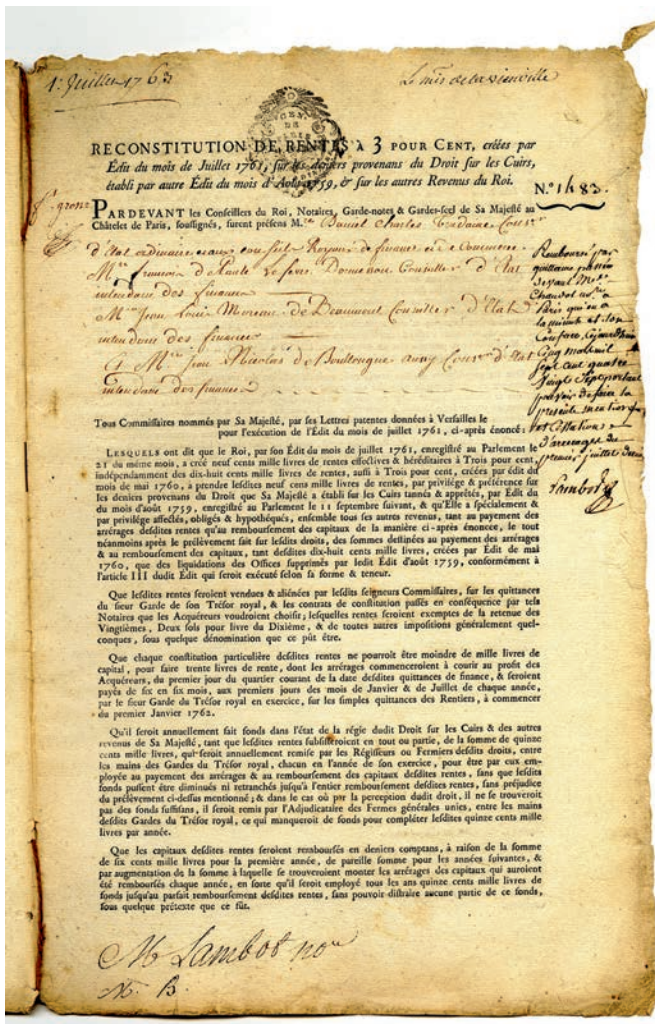 1er Juillet 1763
Le Mis de la Vieuville
RECONSTITUTION DE RENTES à 3 POUR CENT, créées par
Édit du mois de Juillet 1761, sur les deniers provenans du Droit sur les Cuirs,
établi par autre Édit du mois d'Août 1759, & sur les autres Revenus du Roi.
N.º 1483.
PARDEVANT les Conseillers du Roi, Notaires, Garde-notes & Gardes-scel de Sa Majesté au
Châtelet de Paris, soussignés, furent présens M.re Daniel Charles Trudaine Con.er
d'État ordinaire et aux conseils Royaux de finance et de Commerce.
M.re François de Paule Le fevre Dormesson Conseiller d'État
intendant des finances
M.re Jean Louis Moreau de Beaumont Conseiller d'État
intendant des finances
Et M.re Jean Nicolas de Boullongne aussy Con.er d'État
intendant des finances
Remboursé par
quittance passée
devant M.e
Chaudot no.re à
Paris qui en a
la minute et son
Confrere, cejourdhuy
Cinq mai mil
sept cent quatre
vingt sept portant
pouvoir de faire la
presente mention
arrerages du
premier juillet
Lambot
Tous Commissaires nommés par Sa Majesté, par ses Lettres patentes données à Versailles le
pour l'exécution de l'Édit du mois de juillet 1761, ci-après énoncé:
LESQUELS ont dit que le Roi, par son Édit du mois de juillet 1761, enregistré au Parlement le
21 du même mois, a créé neuf cents mille livres de rentes effectives & héréditaires à Trois pour cent,
indépendamment des dix-huit cents mille livres de rentes, aussi à Trois pour cent, créées par édit du
mois de mai 1760, à prendre lesdites neuf cens mille livres de rentes, par privilége & préférence sur
les deniers provenans du Droit que Sa Majesté a établi sur les Cuirs tannés & apprêtés, par Édit du
du mois d'août 1759, enregistré au Parlement le 11 septembre suivant, & qu'Elle a spécialement &
par privilége affectés, obligés & hypothéqués, ensemble tous ses autres revenus, tant au payement des
arrérages desdites rentes qu'au remboursement des capitaux de la manière ci-après énoncée, le tout
néanmoins après le prélèvement fait sur lesdits droits, des sommes destinées au payement des arrérages
& au remboursement des capitaux, tant desdites dix-huit cents mille livres, créées par Édit de mai
1760, que des liquidations des Offices supprimés par ledit Édit d'août 1759, conformément à
l'article III dudit Édit qui seroit exécuté selon sa forme & teneur.
Que lesdites rentes seroient vendues & aliénées par lesdits seigneurs Commissaires, sur les quittances
du sieur Garde de son Trésor royal, & les contrats de constitution passés en conséquence par tels
Notaires que les Acquéreurs voudroient choisir; lesquelles rentes seroient exemptes de la retenue des
Vingtièmes, Deux sols pour livre du Dixième, & de toutes autres impositions généralement quel-
conques, sous quelque dénomination que ce pût être.
Que chaque constitution particulière desdites rentes ne pourroit être moindre de mille livres de
capital, pour faire trente livres de rente, dont les arrérages commenceroient à courir au profit des
Acquéreurs, du premier jour du quartier courant de la date desdites quittances de finance, & seroient
payés de six en six mois, aux premiers jours des mois de Janvier & de Juillet de chaque année,
par le sieur Garde du Trésor royal en exercice, sur les simples quittances des Rentiers, à commencer
du premier Janvier 1762.
Qu'il seroit annuellement fait fonds dans l'état de la régie dudit Droit sur les Cuirs & des autres
revenus de Sa Majesté, tant que lesdites rentes subsisteroient en tout ou partie, de la somme de quinze
cents mille livres, qui seroit annuellement remise par les Régisseurs ou Fermiers desdits droits, entre
les mains des Gardes du Trésor royal, chacun en l'année de son exercice, pour être par eux em-
ployée au payement des arrérages & au remboursement des capitaux desdites rentes, sans que lesdits
fonds pussent être diminués ni retranchés jusqu'à l'entier remboursement desdites rentes, sans préjudice
du prélèvement ci-dessus mentionné; & dans le cas où par la perception dudit droit, il ne se trouveroit
pas des fonds suffisans, il seroit remis par l'Adjudicataire des Fermes générales unies, entre les mains
desdits Gardes du Trésor royal, ce qui manqueroit de fonds pour compléter lesdites quinze cents mille
livres par année.
Que les capitaux desdites rentes seroient remboursés en deniers comptans, à raison de la somme
de six cents mille livres pour la première année, de pareille somme pour les années suivantes, &
par augmentation de la somme à laquelle se trouveroient monter les arrérages des capitaux qui auroient
été remboursés chaque année, en sorte qu'il seroit employé tous les ans quinze cents mille livres de
fonds jusqu'au parfait remboursement desdites rentes, sans pouvoir distraire aucune partie de ce fonds,
sous quelque prétexte que ce fût.
M Lambot no.re
M. B.